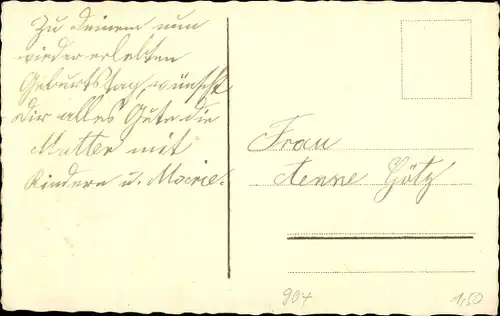 Zu Deinem nun
wieder erlebten
Geburtstag, wünscht
Dir alles Gute die
Mutter mit
Kindern u. Marie.
Frau
Aenne Götz
904
1,50